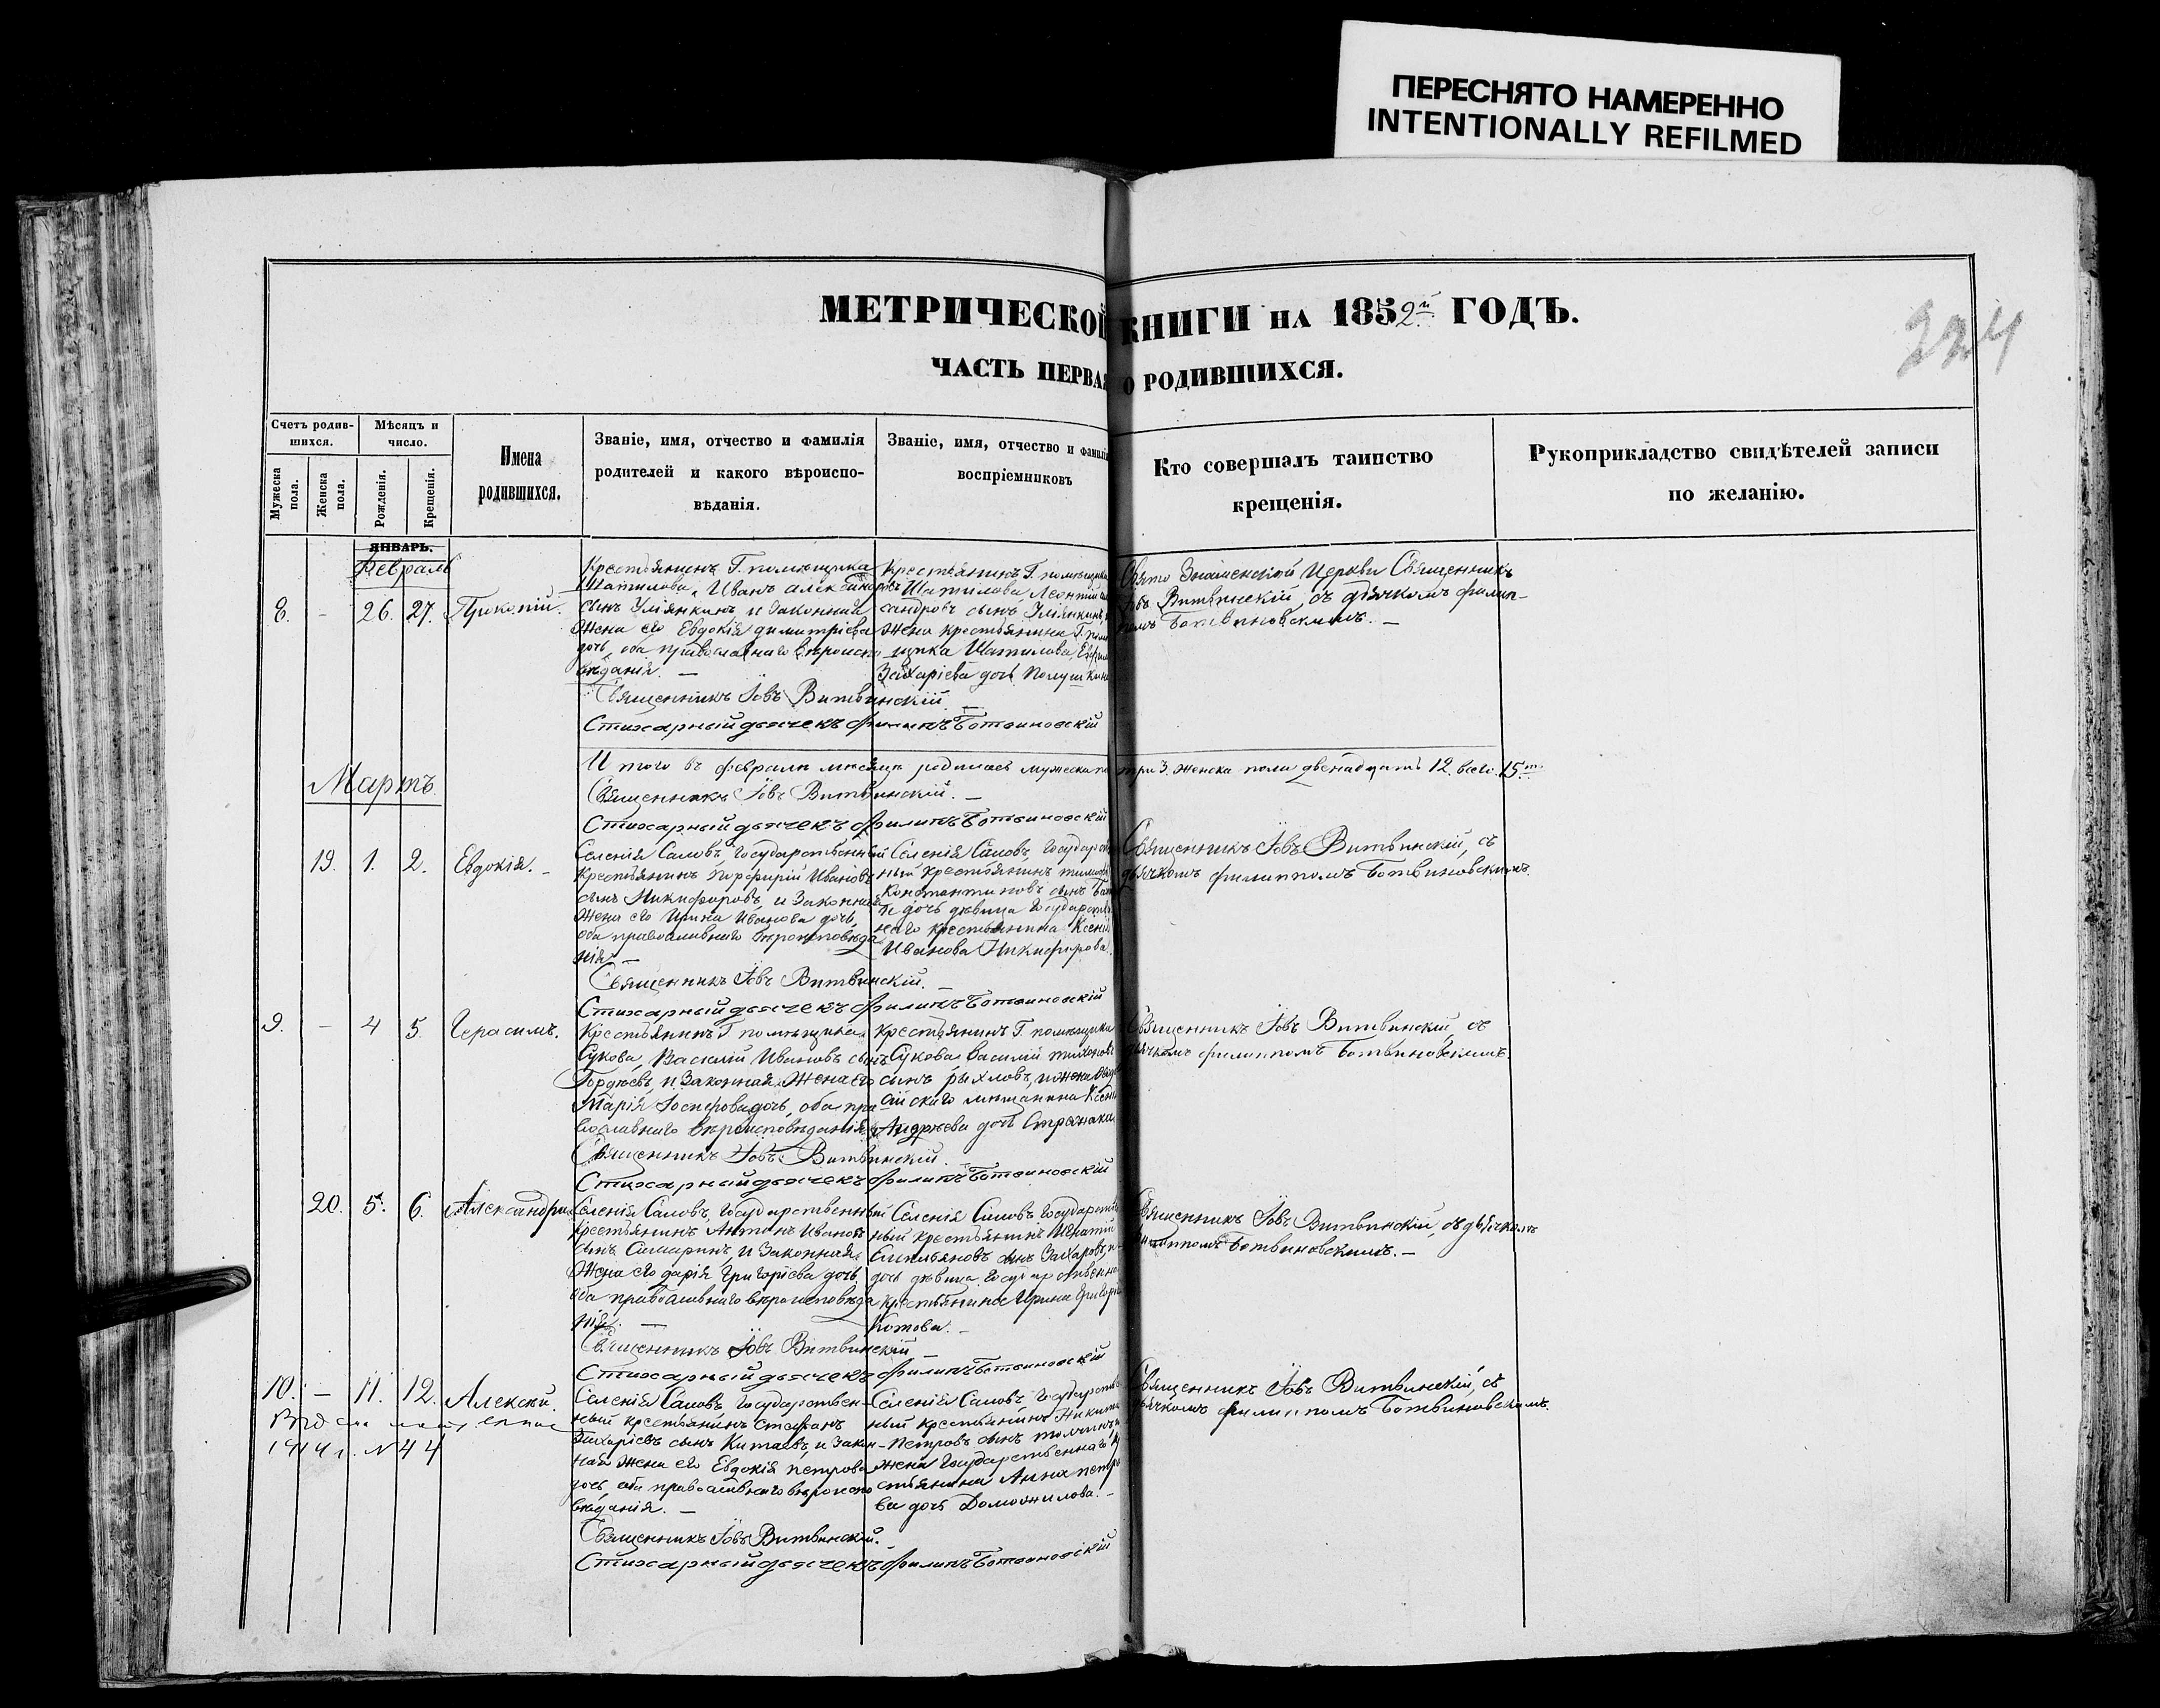 ПЕРЕСНЯТО НАМЕРЕННО
INTENTIONALLY REFILMED
МЕТРИЧЕСКОЙ КНИГИ НА 1852й ГОДЪ.
224
ЧАСТЬ ПЕРВАЯ О РОДИВШИХСЯ.
Счетъ родив-
шихся.
Мужеска
пола.
Женска
пола.
Мѣсяцъ и
число.
Рожденія.
Крещенія.
Имена
родившихся.
Званіе, имя, отчество и фамилія
родителей и какого вѣроиспо-
вѣданія.
Званіе, имя, отчество и фамилія
воспріемниковъ
Кто совершалъ таинство
крещенія.
Рукоприкладство свидѣтелей записи
по желанію.
ЯНВАРЬ.
Февраль
8. - 26. 27. Прокопій.
Крестьянинъ Г. помѣщика
Шатилова, Иванъ Александровъ
сынъ Улянкинъ и законная
жена его Евдокія Димитріева
дочь, оба православнаго вѣроиспо-
вѣданія. —
Крестьянинъ Г. помѣщика
Шатилова Леонтій Алек
сандровъ сынъ Улянкинъ и
жена крестьянина Г. помѣ
щика Шатилова,
Захаріева дочь
Свято Знаменской Церкви Священникъ
Іовъ Витвинскій, съ дьячкомъ Филип-
помъ Ботвиновскимъ. —
Священникъ Іовъ Витвинскій. —
Стихарный дьячекъ Филипъ Ботвиновскій
Итого въ февралѣ мѣсяцѣ родилось мужеска пола три 3. женска пола двенадцать 12. всего 15ть.
Мартъ.
Священникъ Іовъ Витвинскій. —
Стихарный дьячекъ Филипъ Ботвиновскій
19. 1. 2. Евдокія. -
Селенія Саловъ, Государственный
крестьянинъ Порфирій Ивановъ
сынъ Никифоровъ, и законная
жена его Ирина Иванова дочь,
оба православнаго вѣроисповѣда
нія. —
Селенія Саловъ, Государствен
ный крестьянинъ
Константиновъ сынъ
дочь дѣвица Государствен
наго крестьянина Ксенія
Иванова Никифорова.
Священникъ Іовъ Витвинскій, съ
дьячкомъ Филиппомъ Ботвиновскимъ.
Священникъ Іовъ Витвинскій. —
Стихарный дьячекъ Филипъ Ботвиновскій
9. - 4 5. Герасимъ.
Крестьянинъ Г. помѣщика
Сукова, Василій Ивановъ сынъ
Гордѣевъ, и законная жена его
Марія Іосифова дочь, оба пра
вославнаго вѣроисповѣданія
Крестьянинъ Г. помѣщика
Сукова Василій Тихоновъ
сынъ Рыхловъ, и жена
мѣщанина Ксенія
Андрѣева дочь
Священникъ Іовъ Витвинскій, съ
дьячкомъ Филиппомъ Ботвиновскимъ.
Священникъ Іовъ Витвинскій.
Стихарный дьячекъ Филипъ Ботвиновскій
20. 5. 6. Александра
Селенія Саловъ, Государственный
крестьянинъ Антонъ Ивановъ
сынъ Самаринъ, и законная
жена его Дарія Григоріева дочь,
оба православнаго вѣроисповѣда
нія. —
Селенія Саловъ Государствен
ный крестьянинъ Игнатій
Емильяновъ сынъ Захаровъ, и
дочь дѣвица Государственнаго
крестьянина Ирина Григоріева
Котова. —
Священникъ Іовъ Витвинскій, съ дьячкомъ
Филиппомъ Ботвиновскимъ. —
Священникъ Іовъ Витвинскій —
Стихарный дьячекъ Филипъ Ботвиновскій
10. - 11. 12. Алексій.
1914 г. № 44
Селенія Саловъ Государствен-
ный крестьянинъ Стефанъ
Захаріевъ сынъ Китаевъ, и закон-
ная жена его Евдокія Петрова
дочь, оба православнаго вѣроиспо
вѣданія. —
Селенія Саловъ, Государствен
ный крестьянинъ Никита
Петровъ сынъ и
жена Государственнаго кре
стьянина Анна Петро
ва дочь Доможилова. -
Священникъ Іовъ Витвинскій, съ
дьячкомъ Филиппомъ Ботвиновскимъ.
Священникъ Іовъ Витвинскій. —
Стихарный дьячекъ Филипъ Ботвиновскій